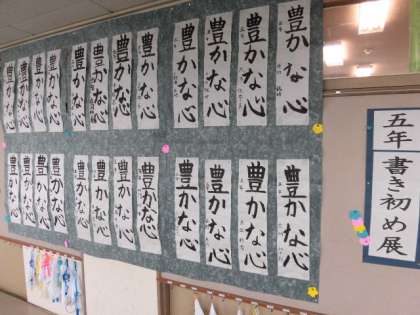 豊かな心
豊かな心
豊かな心
豊かな心
豊かな心
豊かな心
豊かな心
豊かな心
豊かな心
豊かな心
豊かな心
豊かな心
豊かな心
豊かな心
豊かな心
豊かな心
豊かな心
豊かな心
豊かな心
豊かな心
豊かな心
豊かな心
豊かな心
豊かな心
五年 書き初め展